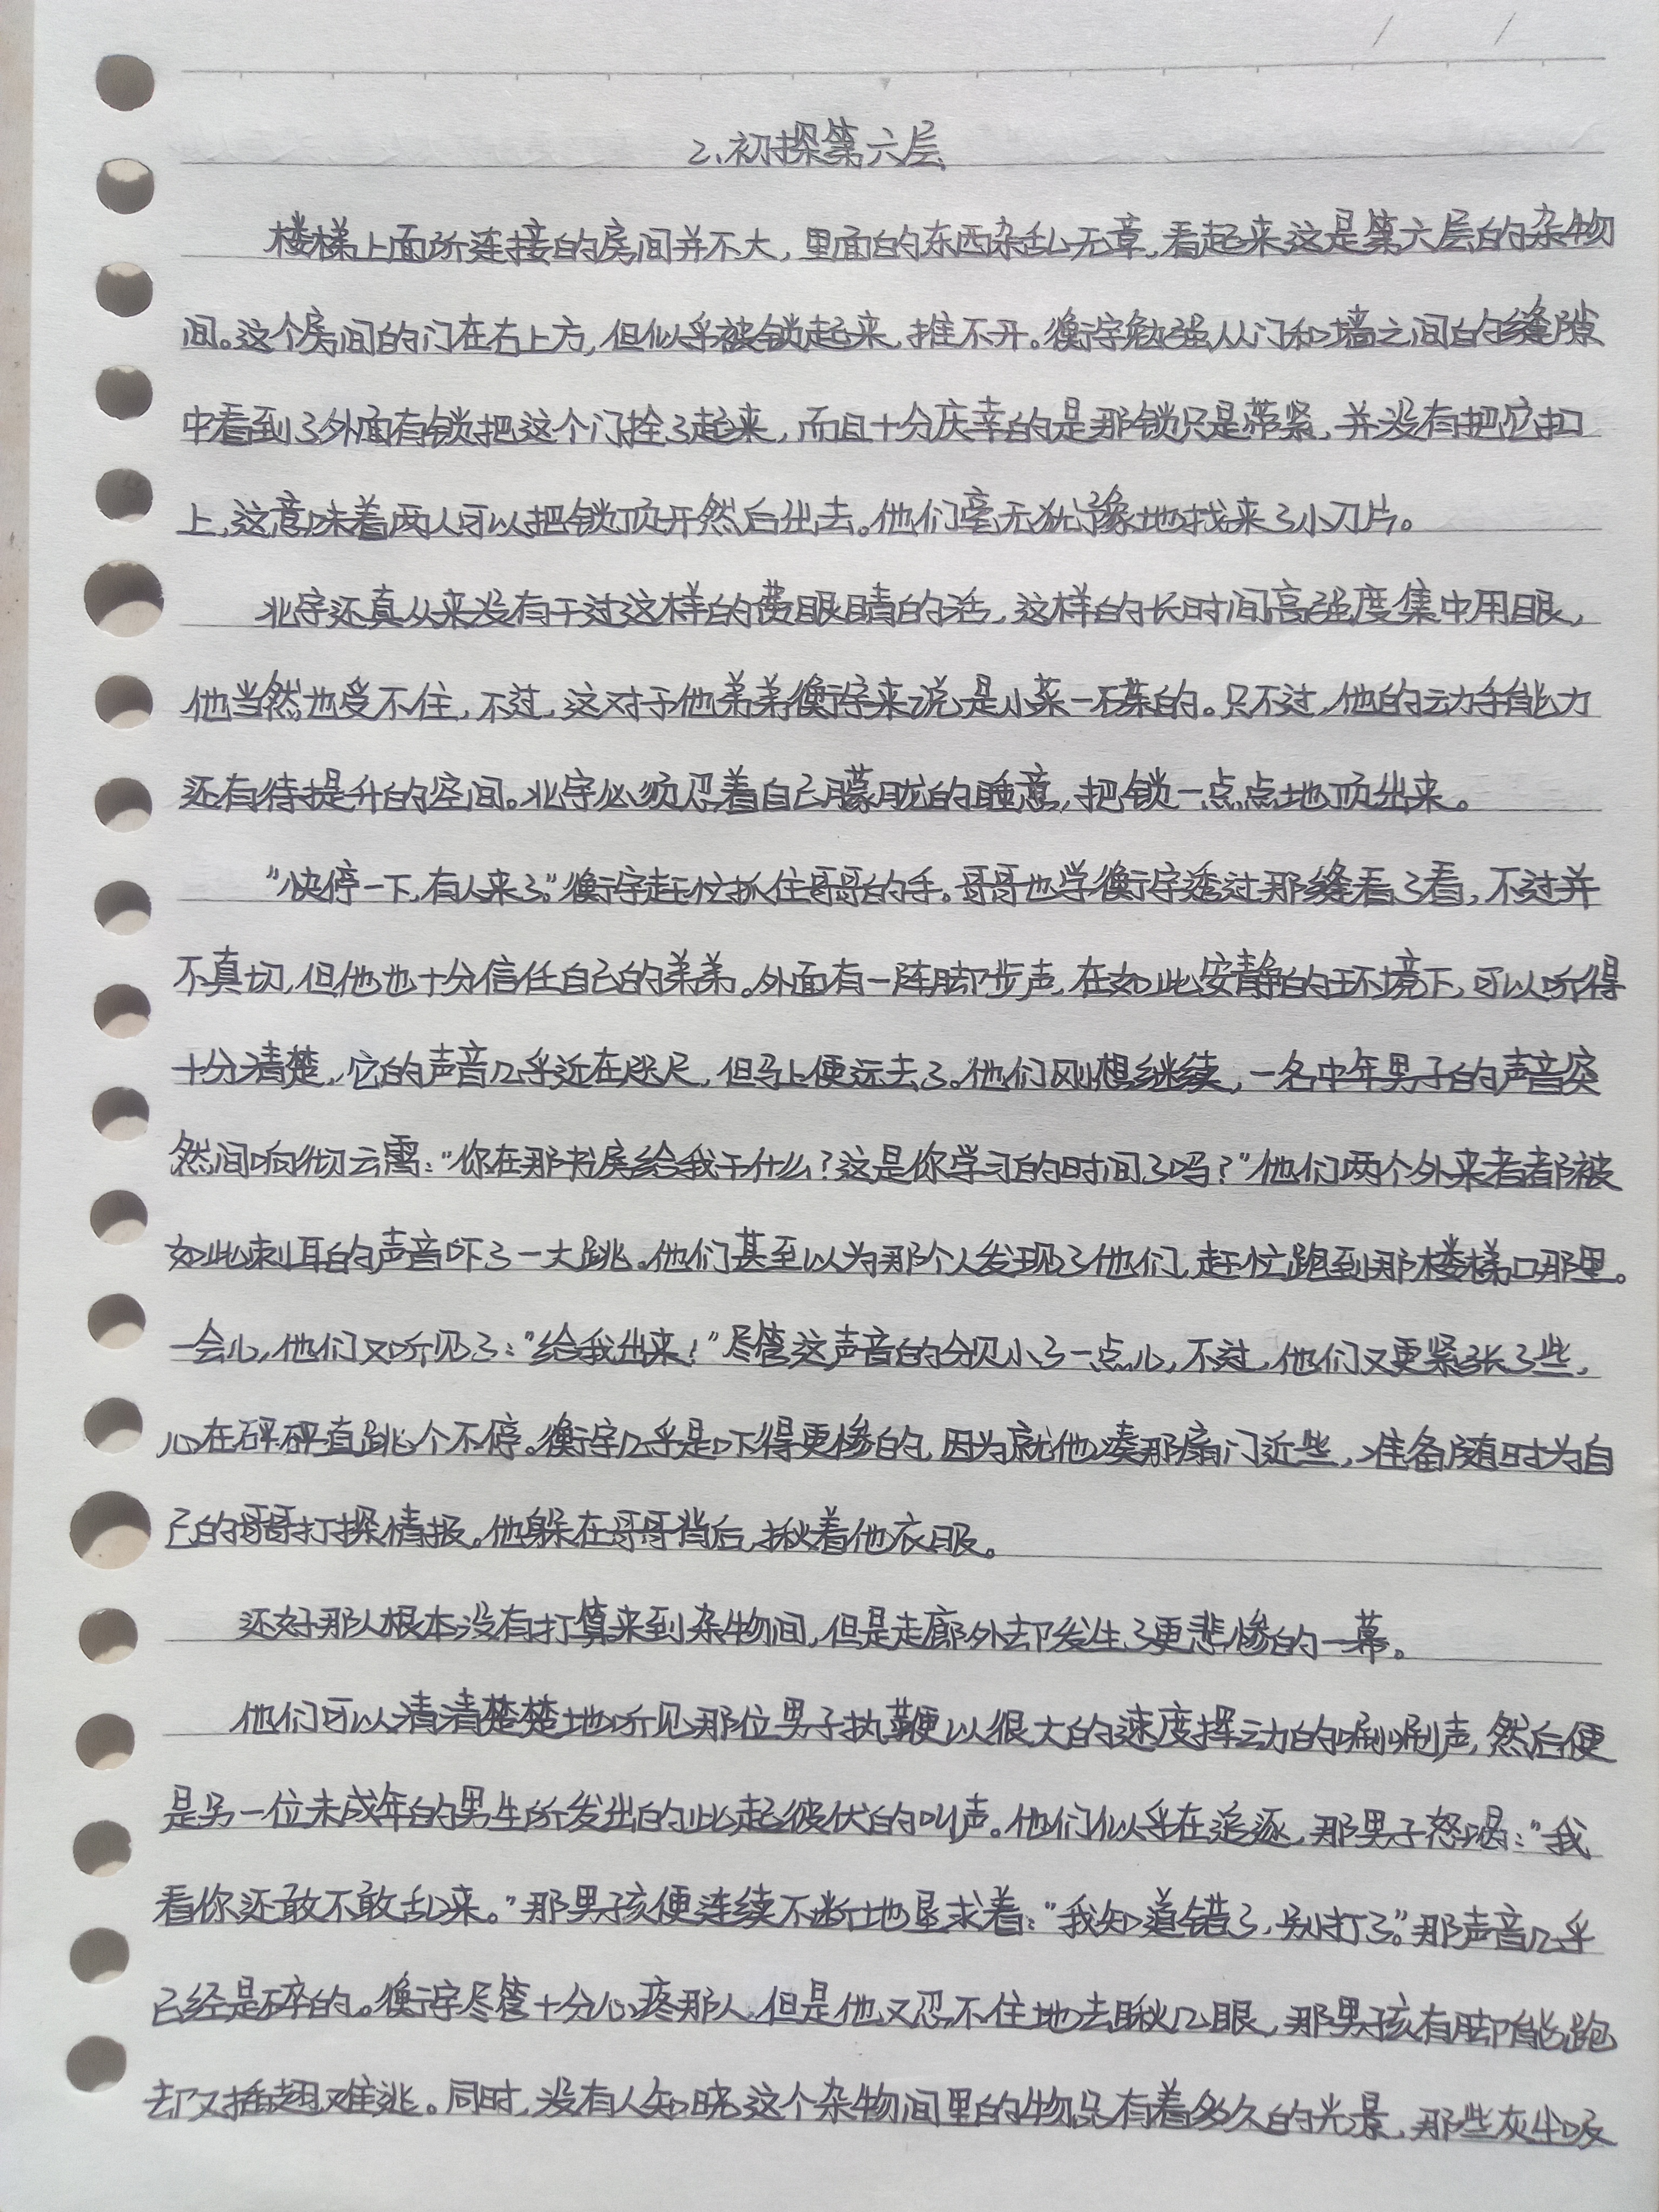 2、初探第六层
楼梯上面所连接的房间并不大，里面的东西杂乱无章，看起来这是第六层的杂物
间。这个房间的门在右上方，但似乎被锁起来，推不开。衡宇勉强从门和墙之间的缝隙
中看到了外面有锁把这个门拴了起来，而且十分庆幸的是那锁只是带紧，并没有把它扣
上，这意味着两人可以把锁顶开然后出去。他们毫无犹豫地找来了小刀片。
北宇还真从来没有干过这样的费眼睛的活，这样的长时间高强度集中用眼，
他当然也受不住，不过，这对于他弟弟衡宇来说是小菜一碟的。只不过，他的动手能力
还有待提升的空间。北宇必须忍着自己朦胧的睡意，把锁一点点地顶出来。
“快停一下，有人来了。”衡宇赶忙抓住哥哥的手。哥哥也学衡宇透过那缝看了看，不过并
不真切，但他也十分信任自己的弟弟。外面有一阵脚步声，在如此安静的环境下，可以听得
十分清楚，它的声音几乎近在咫尺，但马上便远去了。他们刚想继续，一名中年男子的声音突
然间响彻云霄：“你在那书房给我干什么？这是你学习的时间了吗？”他们两个外来者都被
如此刺耳的声音吓了一大跳。他们甚至以为那个人发现了他们，赶忙跑到那楼梯口那里。
一会儿，他们又听见了：“给我出来！”尽管这声音的分贝小了一点儿，不过，他们又更紧张了些，
心在砰砰直跳个不停。衡宇几乎是吓得更惨的，因为就他凑那扇门近些，准备随时为自
己的哥哥打探情报。他躲在哥哥背后，揪着他衣服。
还好那人根本没有打算来到杂物间，但是走廊外却发生了更悲惨的一幕。
他们可以清清楚楚地听见那位男子执鞭以很大的速度挥动的唰唰声，然后便
是另一位未成年的男生所发出的此起彼伏的叫声。他们似乎在追逐，那男子怒喝：“我
看你还敢不敢乱来。”那男孩便连续不断地恳求着：“我知道错了，别打了。”那声音几乎
已经是碎的。衡宇尽管十分心疼那人，但是他又忍不住地去瞅几眼，那男孩有脚能跑
却又插翅难逃。同时，没有人知晓这个杂物间里的物品有着多久的光景，那些灰尘吸